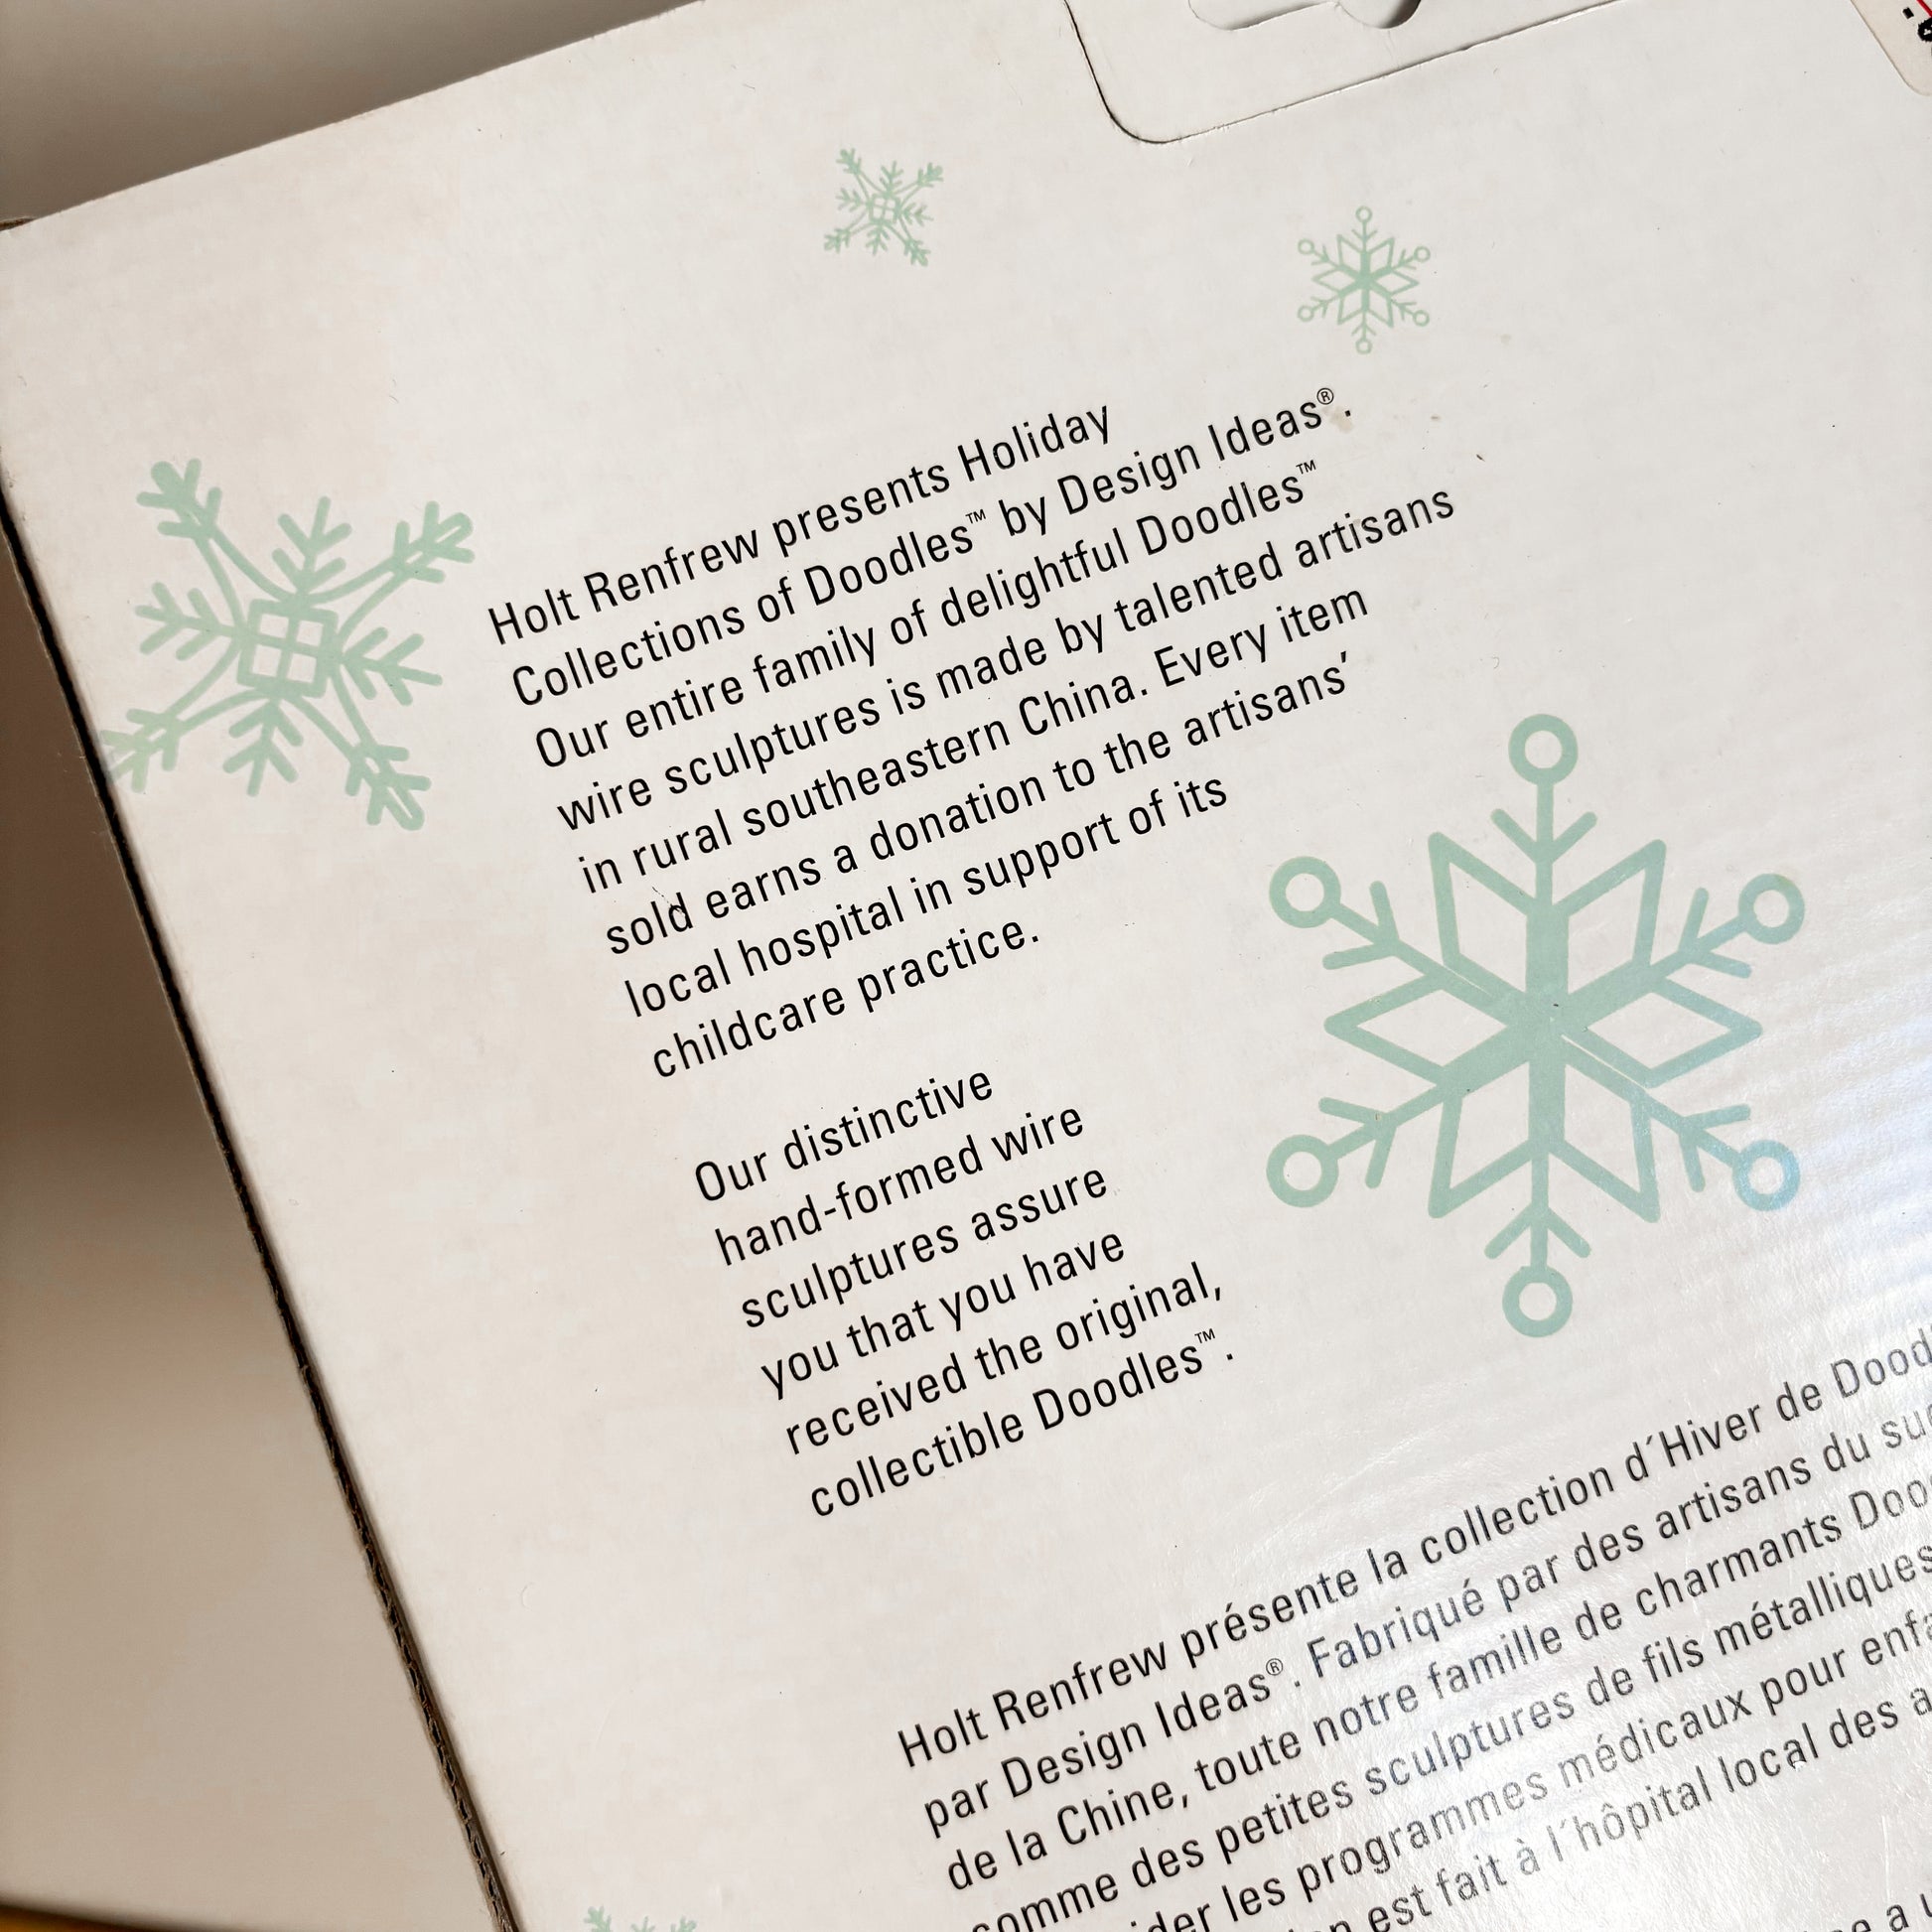 Holt Renfrew presents Holiday
Collections of Doodles™ by Design Ideas®.
Our entire family of delightful Doodles™
wire sculptures is made by talented artisans
in rural southeastern China. Every item
sold earns a donation to the artisans’
local hospital in support of its
childcare practice.
Our distinctive
hand-formed wire
sculptures assure
you that you have
received the original,
collectible Doodles™.
Holt Renfrew présente la collection d´Hiver de
par Design Ideas®. Fabriqué par des artisans du
de la Chine, toute notre famille de charmants
comme des petites sculptures de fils métalliques
les programmes médicaux pour
est fait à l´hôpital local des